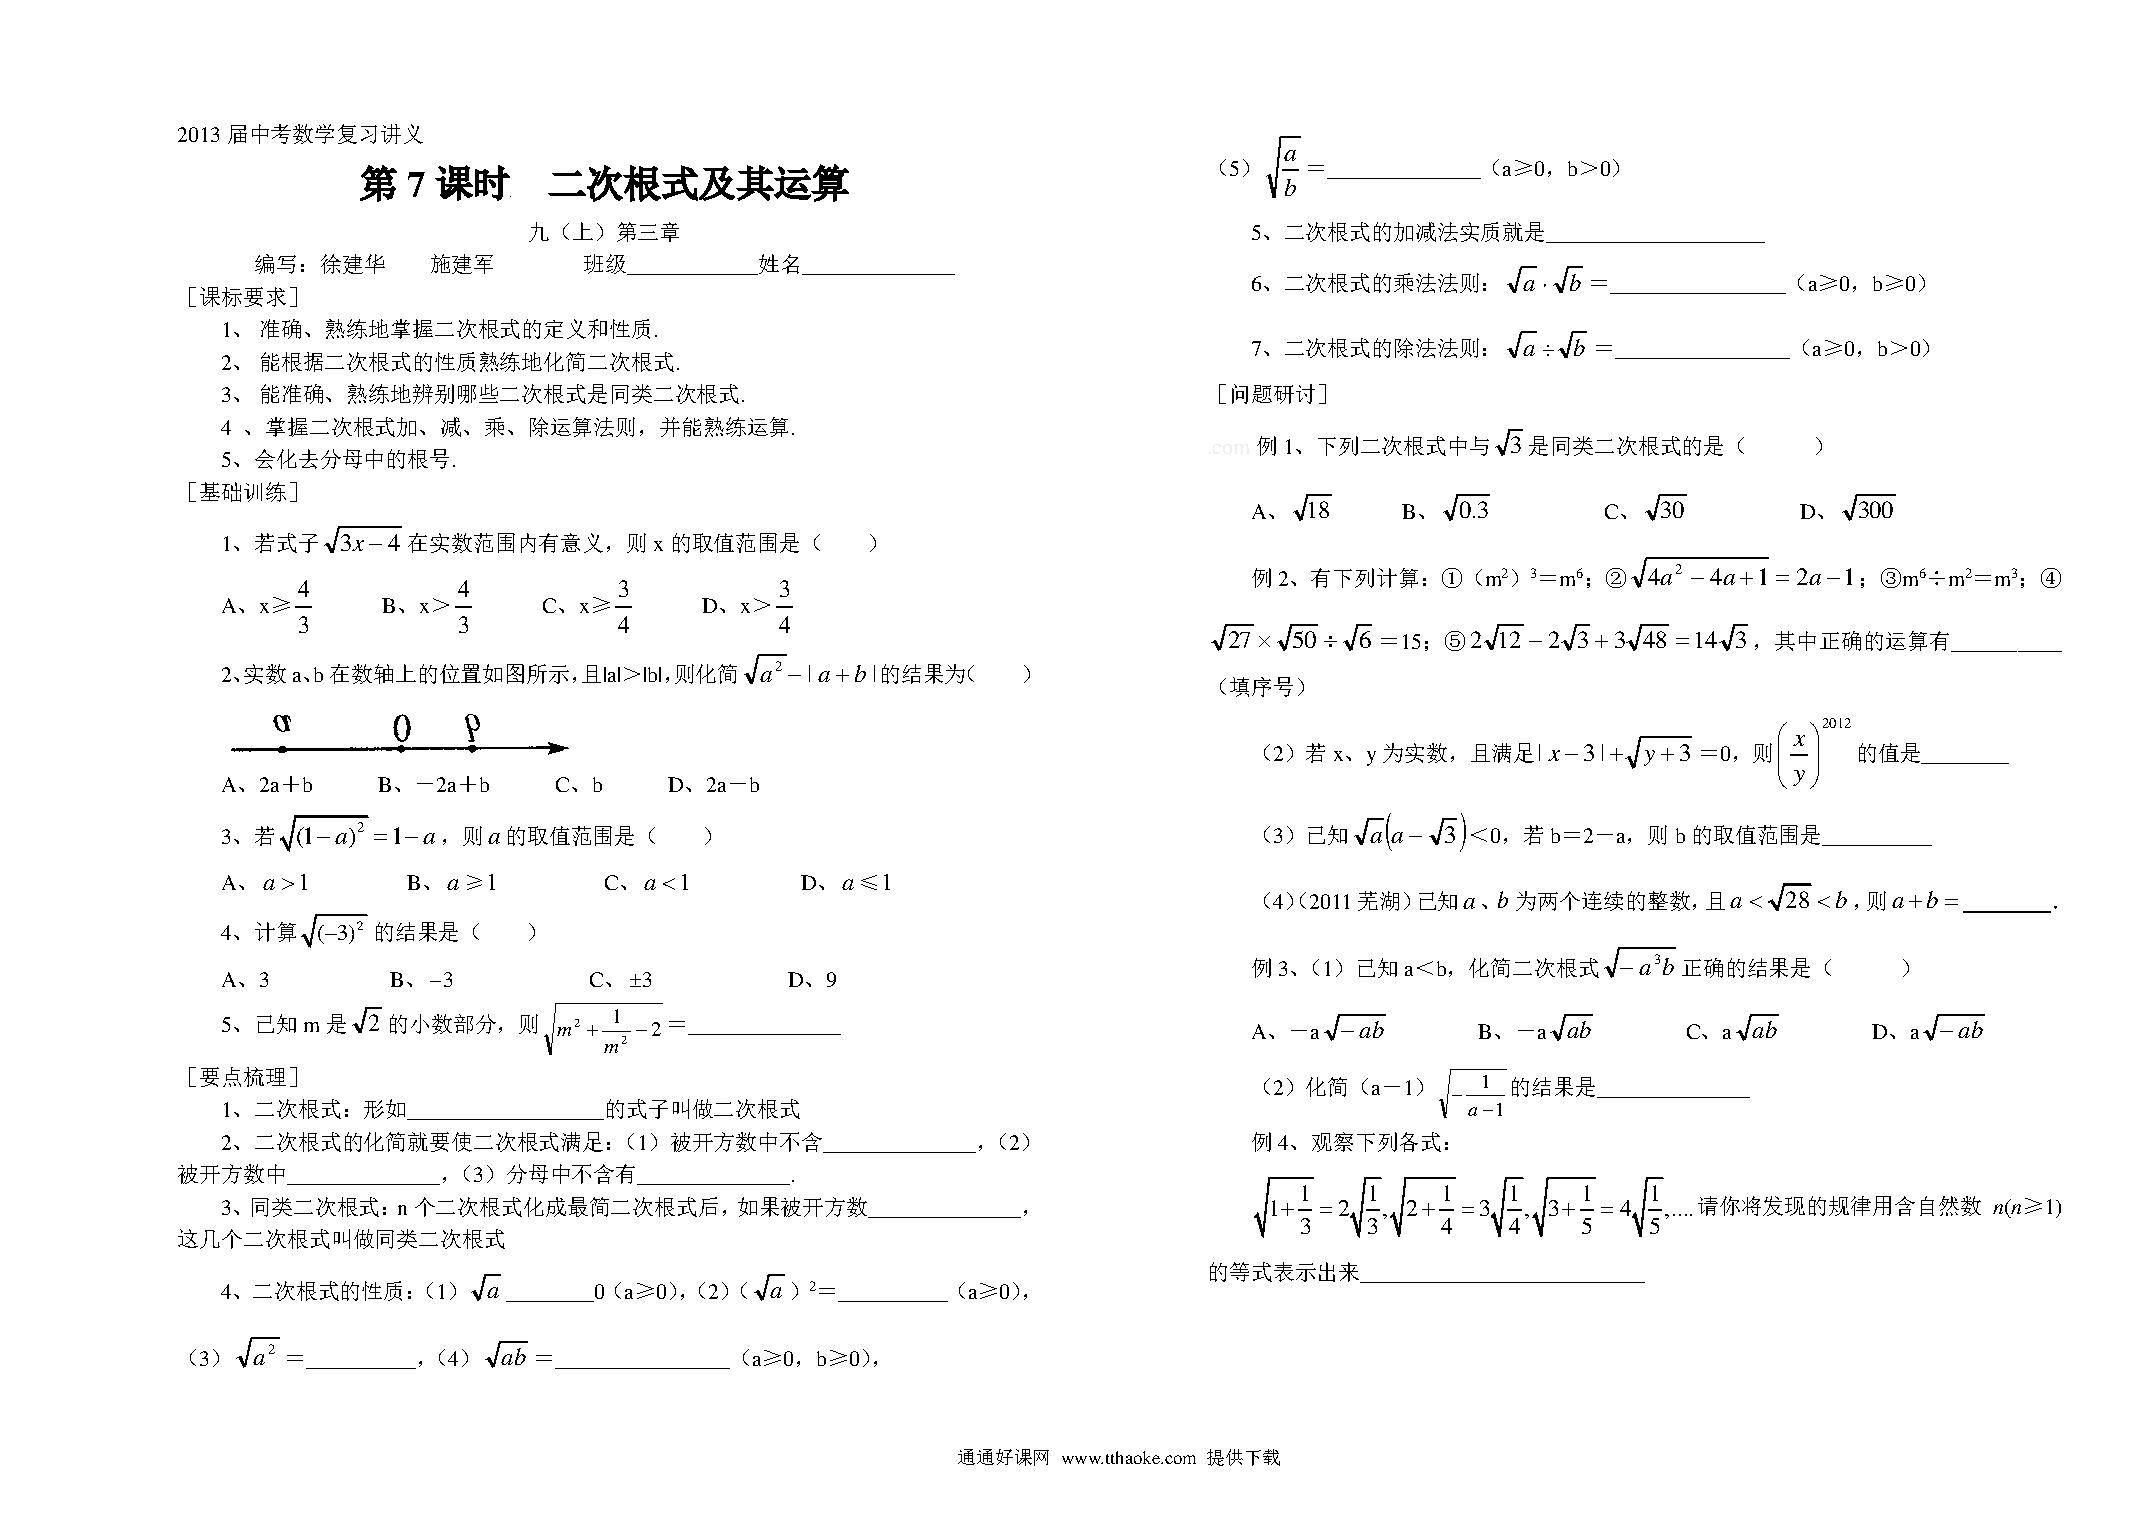 2013 届中考数学复习讲义
第 7 课时 二次根式及其运算
九（上）第三章
编写：徐建华 施建军 班级____________姓名______________
［课标要求］
1、 准确、熟练地掌握二次根式的定义和性质.
2、 能根据二次根式的性质熟练地化简二次根式.
3、 能准确、熟练地辨别哪些二次根式是同类二次根式.
4 、掌握二次根式加、减、乘、除运算法则，并能熟练运算.
5、会化去分母中的根号.
［基础训练］
1、若式子 √(3x－4) 在实数范围内有意义，则 x 的取值范围是（ ）
A、x≥4/3 B、x＞4/3 C、x≥3/4 D、x＞3/4
2、实数 a、b 在数轴上的位置如图所示，且|a|＞|b|，则化简 √(a²)－|a＋b|的结果为（ ）
a 0 b
A、2a＋b B、－2a＋b C、b D、2a－b
3、若 √((1－a)²) ＝1－a，则 a 的取值范围是（ ）
A、a＞1 B、a≥1 C、a＜1 D、a≤1
4、计算 √((−3)²) 的结果是（ ）
A、3 B、−3 C、±3 D、9
5、已知 m 是 √2 的小数部分，则 √(m²＋1/m²－2)＝______________
［要点梳理］
1、二次根式：形如__________________的式子叫做二次根式
2、二次根式的化简就要使二次根式满足：（1）被开方数中不含______________，（2）
被开方数中______________，（3）分母中不含有______________.
3、同类二次根式：n 个二次根式化成最简二次根式后，如果被开方数______________，
这几个二次根式叫做同类二次根式
4、二次根式的性质：（1）√a________0（a≥0），（2）（√a）²＝__________（a≥0），
（3）√(a²)＝__________，（4）√(ab)＝________________（a≥0，b≥0），
（5）√(a/b)＝______________（a≥0，b＞0）
5、二次根式的加减法实质就是____________________
6、二次根式的乘法法则：√a·√b＝________________（a≥0，b≥0）
7、二次根式的除法法则：√a÷√b＝________________（a≥0，b＞0）
［问题研讨］
.com 例 1、下列二次根式中与 √3 是同类二次根式的是（ ）
A、√18 B、√0.3 C、√30 D、√300
例 2、有下列计算：①（m²）³＝m⁶；②√(4a²－4a＋1)＝2a－1；③m⁶÷m²＝m³；④
√27×√50÷√6＝15；⑤2√12－2√3＋3√48＝14√3，其中正确的运算有__________
（填序号）
（2）若 x、y 为实数，且满足|x－3|＋√(y＋3)＝0，则(x/y)²⁰¹² 的值是________
（3）已知 √a(a－√3)＜0，若 b＝2－a，则 b 的取值范围是__________
（4）（2011 芜湖）已知 a、b 为两个连续的整数，且 a＜√28＜b，则 a＋b＝________．
例 3、（1）已知 a＜b，化简二次根式 √(－a³b) 正确的结果是（ ）
A、－a√(－ab) B、－a√(ab) C、a√(ab) D、a√(－ab)
（2）化简（a－1）√(－1/(a－1)) 的结果是______________
例 4、观察下列各式：
√(1＋1/3)＝2√(1/3), √(2＋1/4)＝3√(1/4), √(3＋1/5)＝4√(1/5),....请你将发现的规律用含自然数 n(n≥1)
的等式表示出来__________________________
通通好课网 www.tthaoke.com 提供下载